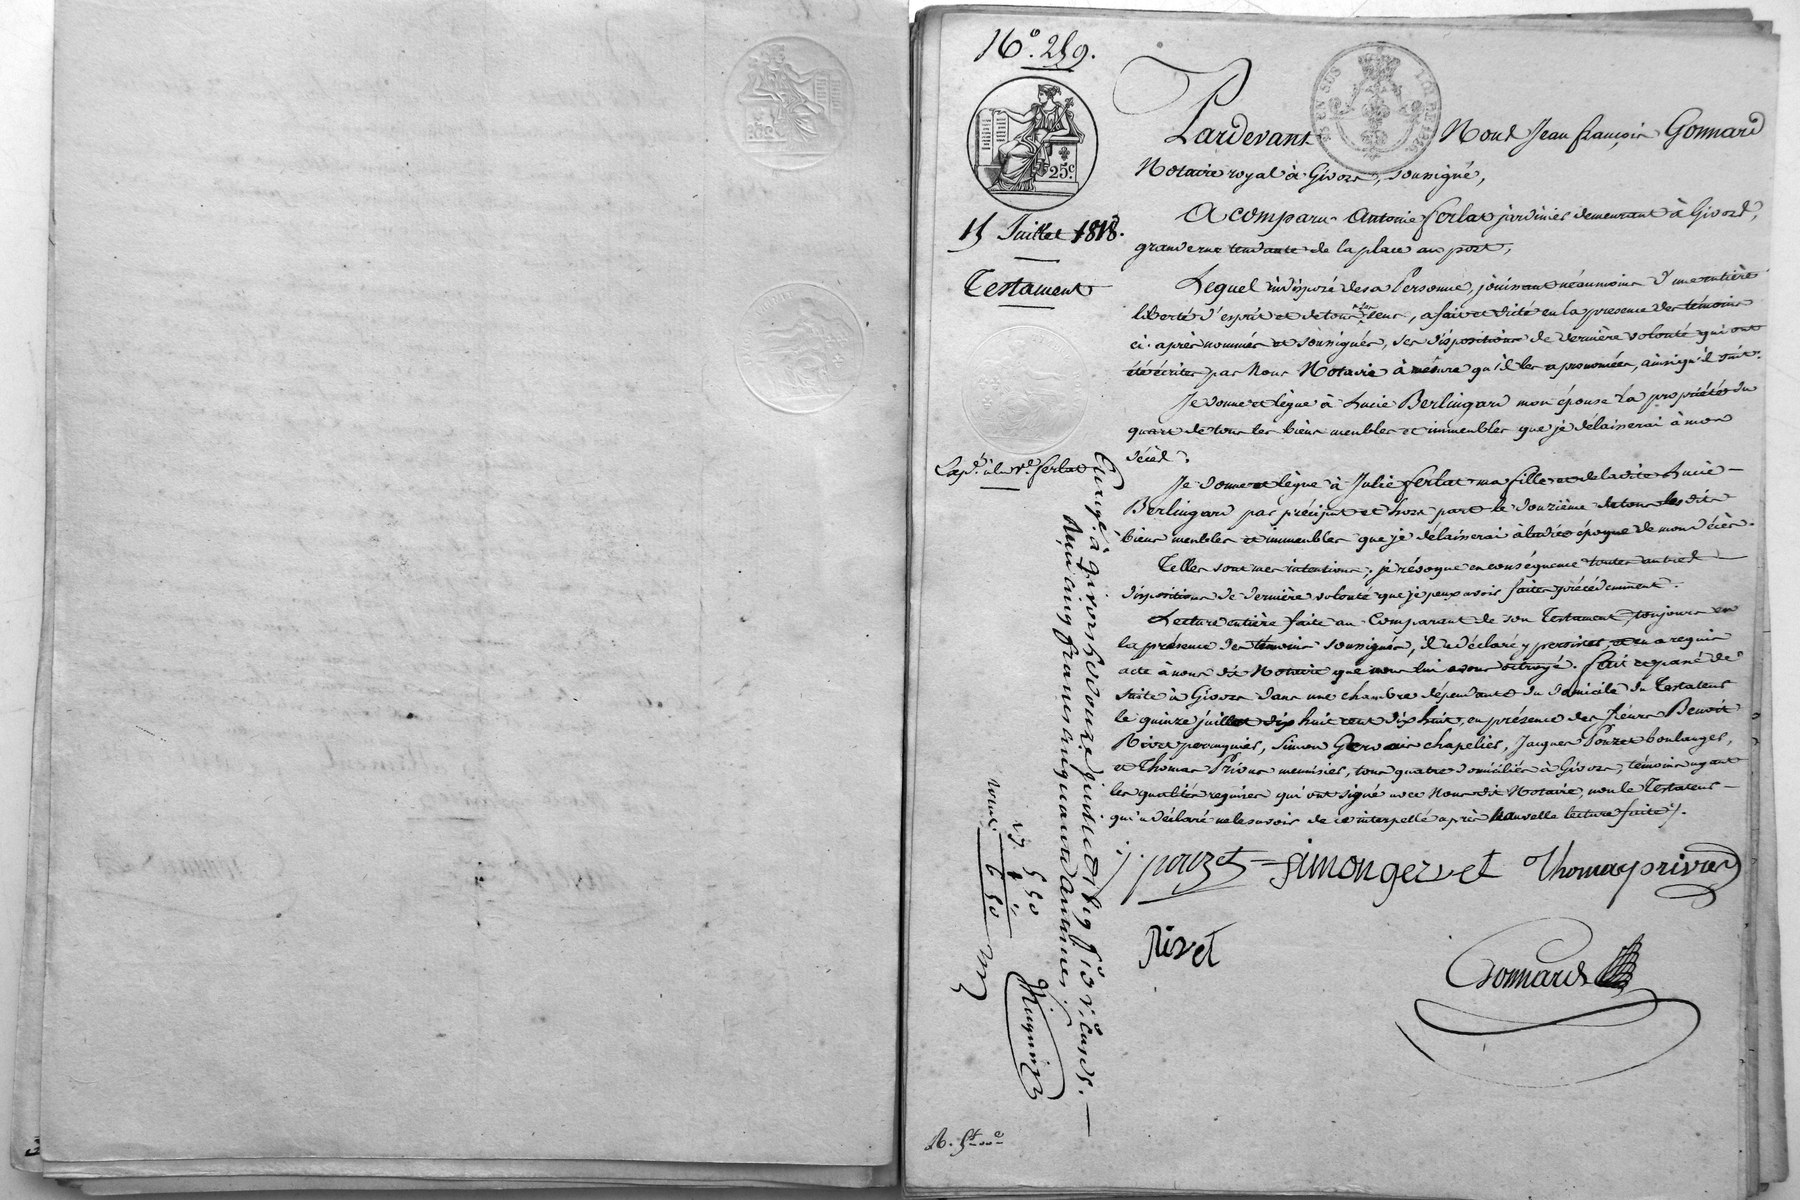 N.° 259.
25c.
EN SUS
TIMBRE
15 Juillet 1818.
Testament
Exp.on à la Ve. ferlat
Pardevant Nous Jean françois Gonnard
Notaire royal à Givors, soussigné,
A comparu Antoine ferlat jardinier demeurant à Givors,
grande rue tendante de la place au port,
Lequel indisposé de sa Personne, jouissant néanmoins d'une entière
liberté d'esprit et de tous ses sens, a fait et dicté en la présence des témoins
ci-après nommés et soussignés, ses dispositions de dernière volonté qui ont
été écrites par Nous Notaire à mesure qu'il les a prononcées, ainsi qu'il suit.
Je donne et lègue à Lucie Berlingard mon épouse la propriété du
quart de tous les biens meubles et immeubles que je délaisserai à mon
décès.
Je donne et lègue à Julie ferlat ma fille et de la dite Lucie
Berlingard par préciput et hors part le douzième de tous les dits
biens meubles et immeubles que je délaisserai à ladite époque de mon décès.
Telles sont mes intentions; je révoque en conséquence toutes autres
dispositions de dernière volonté que je peux avoir faites précédemment.
Lecture entière faite au Comparant de son Testament, toujours en
la présence des témoins soussignés, il a déclaré y persister, et en a requis
acte à nous dit Notaire que nous lui avons octroyé. fait et passé de
suite à Givors dans une chambre dépendante du domicile du Testateur
le quinze juillet dix huit cent dix huit, en présence des sieurs Benoit
Rivet perruquier, Simon Gervais chapelier, Jacques Pouzet boulanger,
et Thomas Privas menuisier, tous quatre domiciliés à Givors, témoins ayant
les qualités requises qui ont signé avec Nous dit Notaire, non le Testateur
qui a déclaré ne le savoir de ce interpellé après nouvelle lecture faite.
j. pouzet simon gervet Thomas privas
Rivet
Gonnard
5 50
6 50